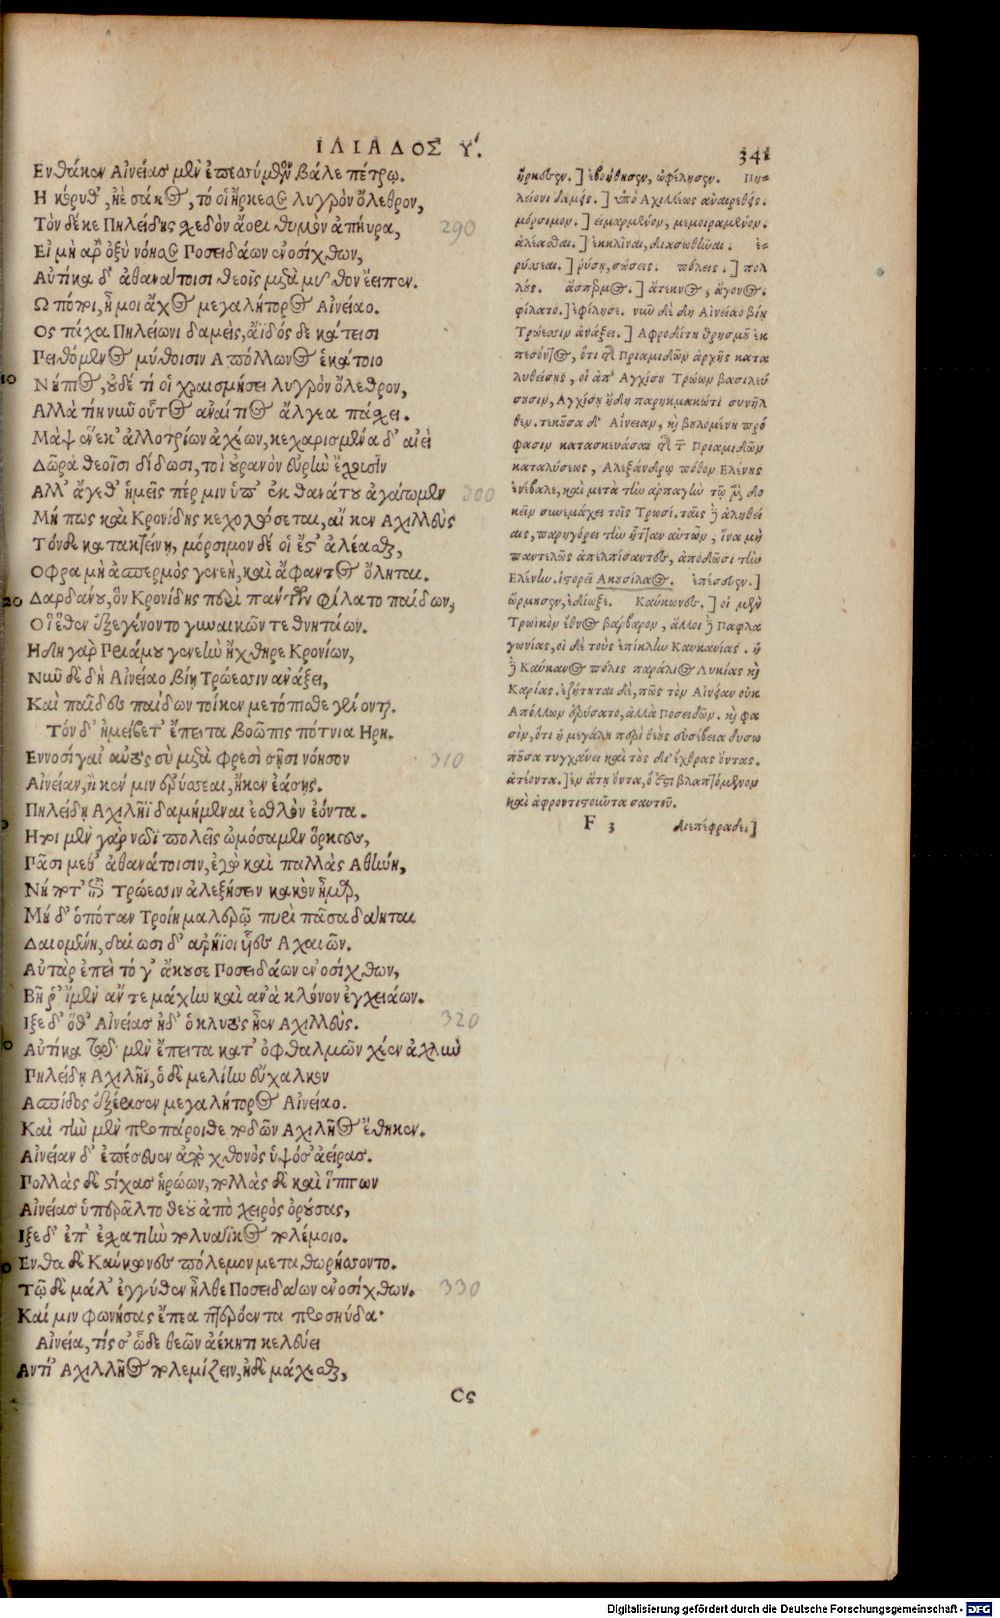 ΙΛΙΑΔΟΣ Υ.
341
Ενθά κεν Αἰνείας μὲν ἐπεσσύμενον βάλε πέτρῳ.
Η κόρυθ', ἠὲ σάκος, τό οἱ ἤρκεσε λυγρὸν ὄλεθρον,
Τὸν δέ κε Πηλείδης σχεδὸν ἄορι θυμὸν ἀπηύρα,
290
Εἰ μὴ ἄρ' ὀξὺ νόησε Ποσειδάων ἐνοσίχθων,
Αὐτίκα δ' ἀθανάτοισι θεοῖς μετὰ μῦθον ἔειπεν.
Ω πόποι, ἦ μοι ἄχος μεγαλήτορος Αἰνείαο.
Ος τάχα Πηλείωνι δαμεὶς, ἄϊδός δε κάτεισι
Πειθόμενος μύθοισιν Απόλλωνος ἑκάτοιο
10
Νήπιος, οὐδέ τί οἱ χραισμήσει λυγρὸν ὄλεθρον,
Αλλὰ τίη νῦν οὗτος ἀναίτιος ἄλγεα πάσχει.
Μὰψ ἕνεκ' ἀλλοτρίων ἀχέων, κεχαρισμένα δ' αἰεὶ
Δῶρα θεοῖσι δίδωσι, τοὶ οὐρανὸν εὐρὺν ἔχουσιν
Αλλ' ἄγεθ' ἡμεῖς πέρ μιν ὑπ' ἐκ θανάτου ἀγάγωμεν
300
Μή πως καὶ Κρονίδης κεχολώσεται, αἴ κεν Αχιλλεὺς
Τόνδε κατακτείνῃ, μόρσιμον δέ οἱ ἔστ' ἀλέασθαι,
Οφρα μὴ ἄσπερμος γενεὴ, καὶ ἄφαντος ὄληται.
20
Δαρδάνου, ὃν Κρονίδης περὶ πάντων φίλατο παίδων,
Οἳ ἕθεν ἐξεγένοντο γυναικῶν τε θνητάων.
Ηδη γὰρ Πριάμου γενεὴν ἤχθηρε Κρονίων,
Νῦν δὲ δὴ Αἰνείαο βίη Τρώεσσιν ἀνάξει,
Καὶ παῖδες παίδων τοί κεν μετόπισθε γένωνται.
Τὸν δ' ἠμείβετ' ἔπειτα βοῶπις πότνια Ηρη.
Εννοσίγαι' αὐτὸς σὺ μετὰ φρεσὶ σῇσι νόησον
310
Αἰνείαν, ἤ κεν μιν ἐρύσσεαι, ἦ κεν ἐάσῃς.
Πηλείδῃ Αχιλῆϊ δαμήμεναι ἐσθλὸν ἐόντα.
Ητοι μὲν γὰρ νῶϊ πολεῖς ὠμόσαμεν ὅρκους,
Πᾶσι μετ' ἀθανάτοισιν, ἐγὼ καὶ παλλὰς Αθήνη,
Μή ποτ' ἐπὶ Τρώεσσιν ἀλεξήσειν κακὸν ἦμαρ,
Μήδ' ὁπόταν Τροίη μαλερῷ πυρὶ πᾶσα δάηται
Δαιομένη, δαίωσι δ' ἀρήϊοι υἷες Αχαιῶν.
Αὐτὰρ ἐπεὶ τό γ' ἄκουσε Ποσειδάων ἐνοσίχθων,
Βῆ ῥ' ἴμεν ἄν τε μάχην καὶ ἀνὰ κλόνον ἐγχειάων.
Ιξε δ' ὅθ' Αἰνείας ἠδ' ὁ κλυτὸς ἦεν Αχιλλεύς.
320
Αὐτίκα τῷ μὲν ἔπειτα κατ' ὀφθαλμῶν χέεν ἀχλὺν
Πηλείδῃ Αχιλῆϊ, ὁ δὲ μελίην εὔχαλκον
Ασπίδος ἐξέρυσεν μεγαλήτορος Αἰνείαο.
Καὶ τὴν μὲν προπάροιθε ποδῶν Αχιλῆος ἔθηκεν.
Αἰνείαν δ' ἐπέσσευεν ἀπὸ χθονὸς ὑψόσ' ἀείρας.
Πολλὰς δὲ στίχας ἡρώων, πολλὰς δὲ καὶ ἵππων
Αἰνείας ὑπερᾶλτο θεοῦ ἀπὸ χειρὸς ὀρούσας,
Ιξε δ' ἐπ' ἐσχατιὴν πολυάϊκος πολέμοιο.
Ενθα δὲ Καύκωνες πόλεμον μετα θωρήσσοντο.
Τῷ δὲ μάλ' ἐγγύθεν ἦλθε Ποσειδάων ἐνοσίχθων.
330
Καί μιν φωνήσας ἔπεα πτερόεντα προσηύδα·
Αἰνεία, τίς σ' ὧδε θεῶν ἀέκητι κελεύει
Αντί' Αχιλλῆος πολεμίζειν, ἠδὲ μάχεσθαι,
Ος
ἤρκεσεν.] ἐβοήθησεν, ὠφέλησεν. Πη-
λείονι δαμείς.] ὑπὸ Αχιλλέως ἀναιρεθείς.
μόρσιμον.] εἱμαρμένον, μεμοιραμένον.
ἀλέασθαι.] ἐκκλῖναι, διασωθῆναι. ἐ-
ρύσσεαι.] ῥύσῃ, σώσεις. πόλεις.] πολ
λούς. ἄσπερμος.] ἄτεκνος, ἄγονος.
φίλατο.] ἐφίλησε. νῦν δὲ δὴ Αἰνείαο βίη
Τρώεσσιν ἀνάξει.] Αφροδίτη χρησμοῦ ἐκ
πεσόντος, ὅτι τῆς Πριαμιδῶν ἀρχῆς κατα
λυθείσης, οἱ ἀπ' Αγχίσου Τρώων βασιλεύ
σουσιν, Αγχίσῃ ἤδη παρηκμακότι συνῆλ
θεν. τεκοῦσα δ' Αἰνείαν, καὶ βουλομένη πρό
φασιν κατασκευάσαι τῆς τῶν Πριαμιδῶν
καταλύσεως, Αλεξάνδρῳ πόθον Ελένης
ἐνέβαλε, καὶ μετὰ τὴν ἁρπαγὴν τῷ μὲν δο
κεῖν συνεμάχει τοῖς Τρωσί. ταῖς δὲ ἀληθεί
αις, παρηγόρει τὴν ἧτταν αὐτῶν, ἵνα μὴ
παντελῶς ἀπελπίσαντες, ἀποδῶσι τὴν
Ελένην. ἱστορεῖ Ακουσίλαος. ἐπέσσευεν.]
ὥρμησεν, ἐδίωξε. Καύκωνες.] οἱ μὲν
Τρωϊκὸν ἔθνος βάρβαρον, ἄλλοι δὲ Παφλα
γωνίας, οἱ δὲ τοὺς ἐπίκλην Καυκανίας. ἡ
δὲ Καύκανος πόλις παράλιος Λυκίας καὶ
Καρίας. ἐζήτηται δὲ, πῶς τὸν Αἰνείαν οὐκ
Απόλλων ἐρύσατο, ἀλλὰ Ποσειδῶν. καὶ φα
σὶν, ὅτι ἡ μεγάλη περὶ θεοὺς εὐσέβεια δυσω
ποῦσα τυγχάνει καὶ τοὺς δι' ἔχθρας ὄντας.
ἀτέοντα.] ἐν ἄτῃ ὄντα, ὅ ἐστι βλαπτόμενον
καὶ ἀφροντιστοῦντα σαυτοῦ.
F 3
διεπέφραδε.]
Digitalisierung gefördert durch die Deutsche Forschungsgemeinschaft - DFG